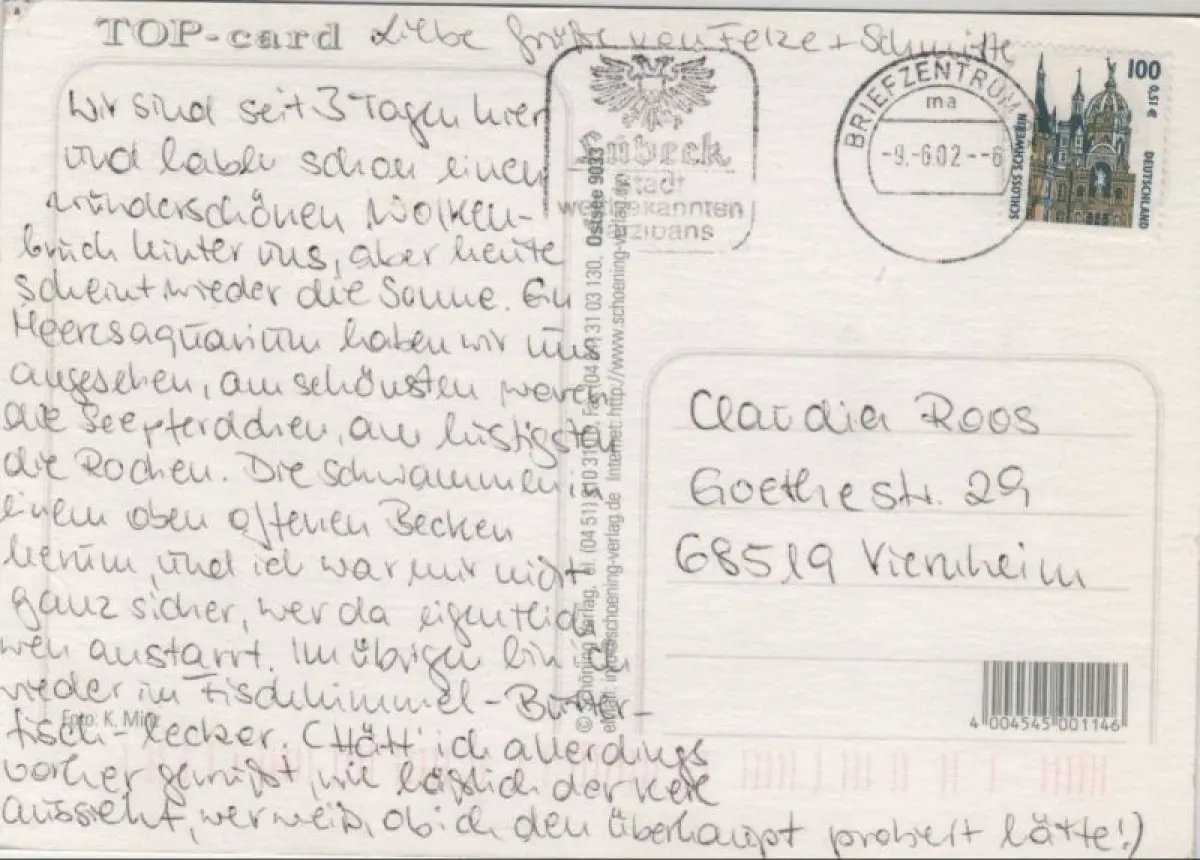 TOP-card Liebe Grüße von Felze + Schmitte
Wir sind seit 3 Tagen hier
und haben schon einen
wunderschönen Wolken-
bruch hinter uns, aber heute
scheint wieder die Sonne. Ein
Meeresaquarium haben wir uns
angesehen, am schönsten waren
die Seepferdchen, am lustigsten
die Rochen. Die schwammen in
einem oben offenen Becken
herum, und ich war mir nicht
ganz sicher, wer da eigentlich
wen anstarrt. Im übrigen bin ich
wieder im Fischhimmel - Butter-
fisch - lecker. (Hätt' ich allerdings
vorher gewußt, wie häßlich der Kerl
aussieht, wer weiß, ob ich den überhaupt probiert hätte!)
Foto: K. Minz
Stadt
weltbekannten
Marzipans
© Schöning Verlag, Tel. (04 51) 3 10 31 0, Fax (04 51) 31 03 130, Ostsee 9033
eMail: info@schoening-verlag.de Internet: http://www.schoening-verlag.de
BRIEFZENTRUM
ma
-9.-6.02--6
100
0,51 €
SCHLOSS SCHWERIN
DEUTSCHLAND
Claudia Roos
Goethestr. 29
68519 Viernheim
4 004545 001146